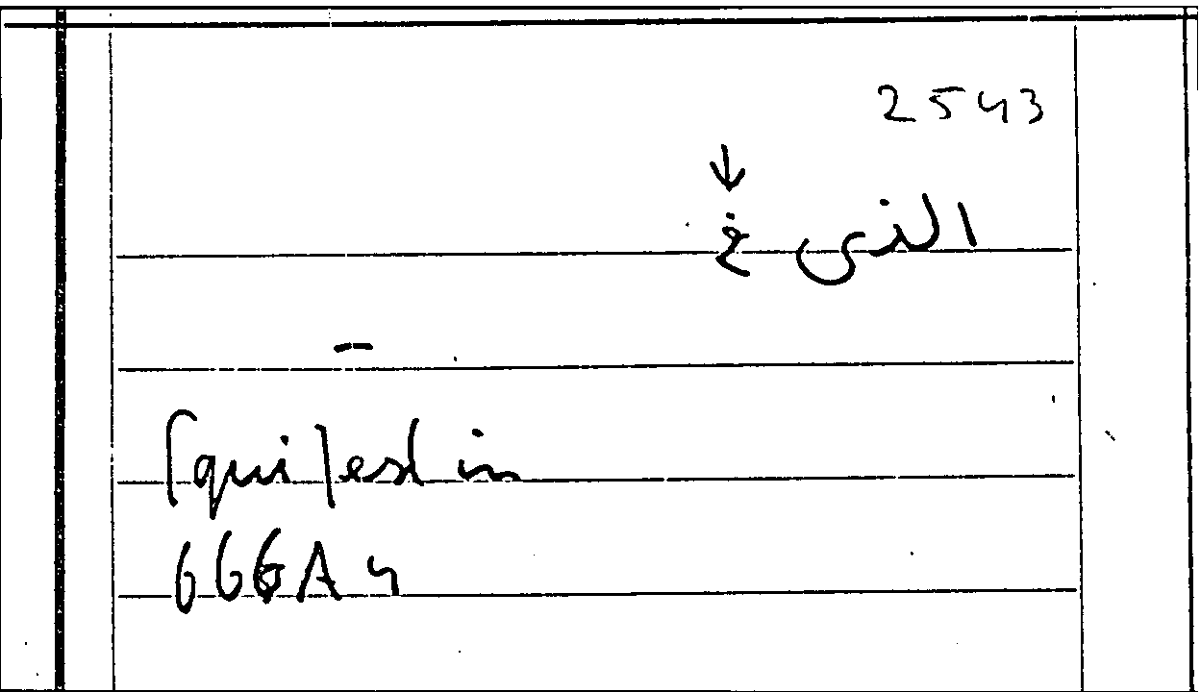 2543
↓
الذى غ
[qui] est in
666A4